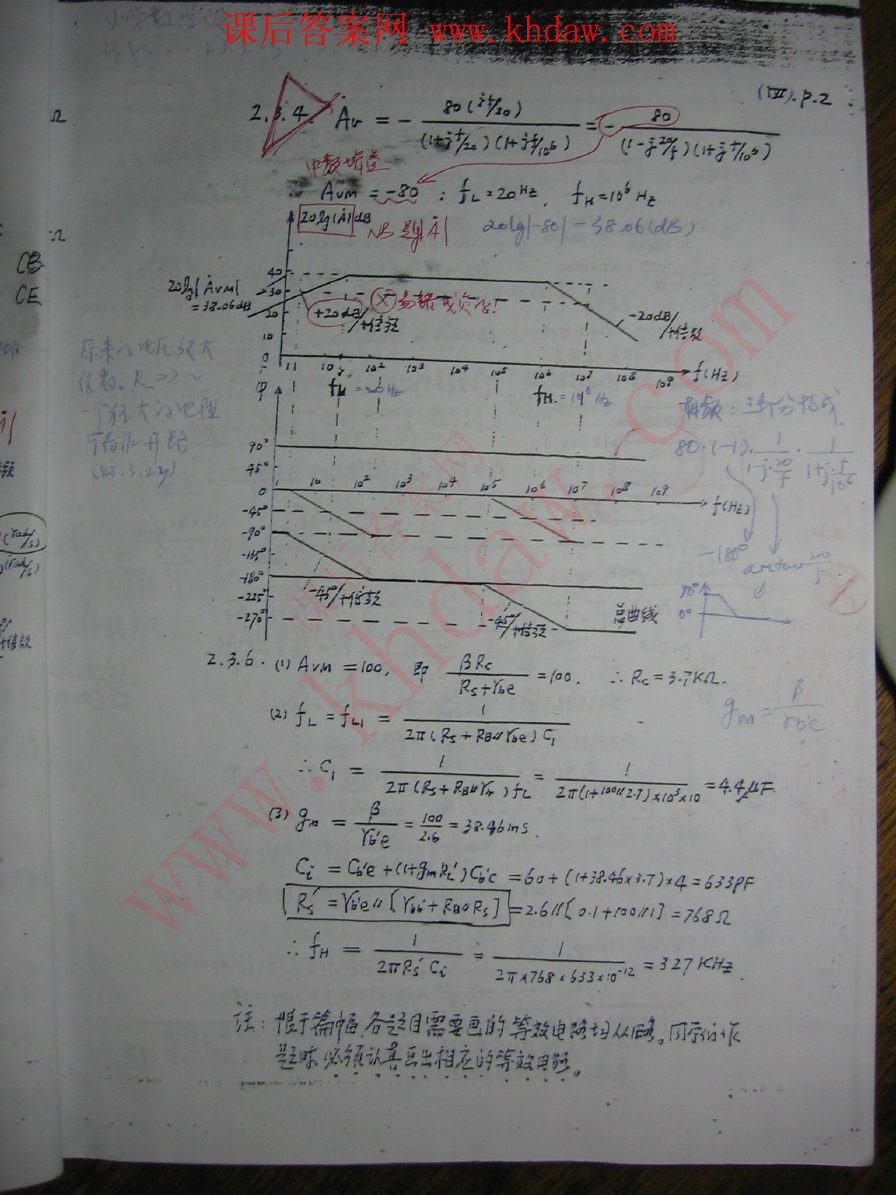 课后答案网 www.khdaw.com
(Ⅶ).P.2
2.3.4. Av = - 80(jf/20) / (1+jf/20)(1+jf/10⁶) = - 80 / (1-j20/f)(1+jf/10⁶)
中频增益
AvM = -80 ; fL = 20Hz, fH = 10⁶Hz
20lg|Ȧ|dB
20lg|-80| = 38.06(dB)
40
20lg|ȦvM| = 38.06dB
30
20
10
0
+20dB/十倍频
-20dB/十倍频
1 10 10² 10³ 10⁴ 10⁵ 10⁶ 10⁷ 10⁸ 10⁹ f(Hz)
fL = 20Hz
fH = 10⁶Hz
原来的电压放大
一个很大的电阻
可看作开路
CB
CE
φ
90°
45°
0
-45°
-90°
-135°
-180°
-225°
-270°
1 10 10² 10³ 10⁴ 10⁵ 10⁶ 10⁷ 10⁸ 10⁹ f(Hz)
-45°/十倍频
-45°/十倍频
总曲线
相频：三部分构成
80·(-1)· 1/(1-j·20/f) · 1/(1+j·f/10⁶)
-180°
arctan 20/f
90°
0°
2.3.6. (1) AvM = 100, 即 βRc / (Rs+rbe) = 100, ∴ Rc = 3.7KΩ.
gm = β / rb'e
(2) fL = fL1 = 1 / 2π(Rs+RB∥rbe)C1
∴ C1 = 1 / 2π(Rs+RB∥rbe)fL = 1 / 2π(1+100∥2.7)×10³×10 = 4.4μF
(3) gm = β / rb'e = 100 / 2.6 = 38.46ms.
Ci = Cb'e + (1+gmRL')Cb'c = 60 + (1+38.46×3.7)×4 = 633PF
Rs' = rb'e∥[rbb'+RB∥Rs] = 2.6∥[0.1+100∥1] = 768Ω
∴ fH = 1 / 2πRs'Ci = 1 / 2π×768×633×10⁻¹² = 327KHz.
注：限于篇幅，各题目需要画的等效电路均从略。同学们做
题时必须认真画出相应的等效电路。
课后答案网
www.khdaw.com